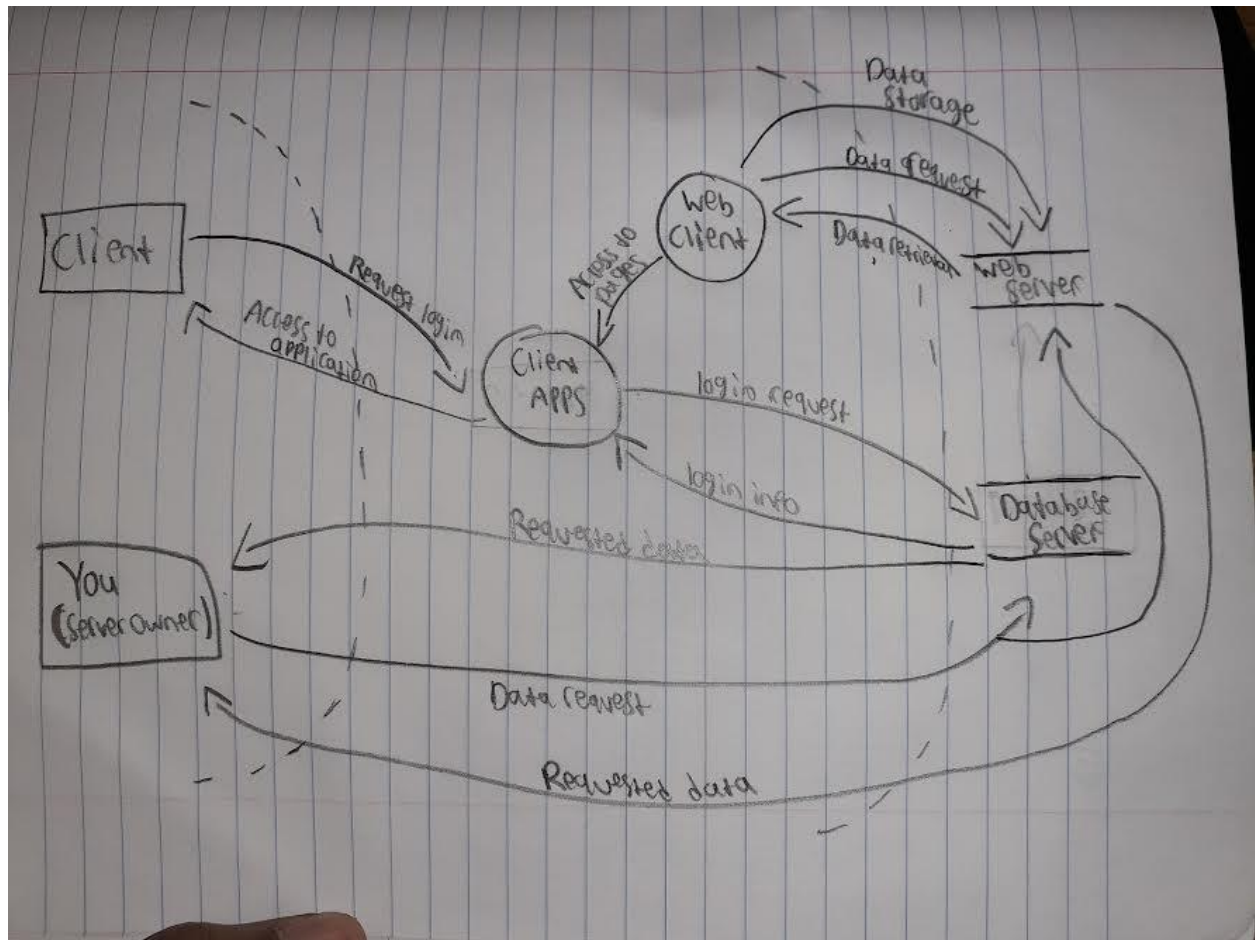 Data
Storage
Data request
Web
Client
Data retrieval
Web
Server
Client
Request login
Access to
pages
Access to
application
Client
APPS
login request
login info
Database
Server
Requested data
You
(Server owner)
Data request
Requested data